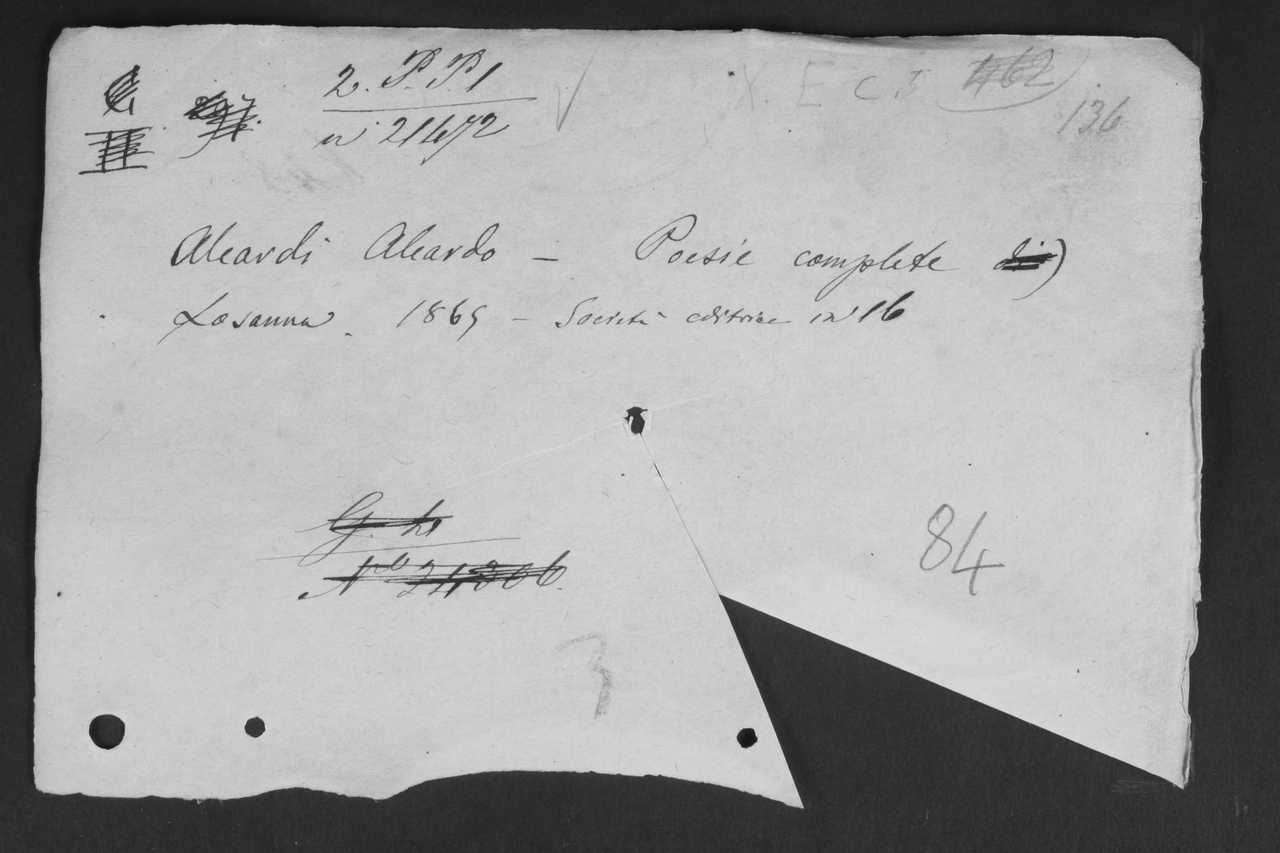 2. P. P. 1
n° 21472
X. E C I 462
136
Aleardi Aleardo - Poesie complete di)
Losanna. 1865 - Società editrice in 16
N° 24806.
84
3